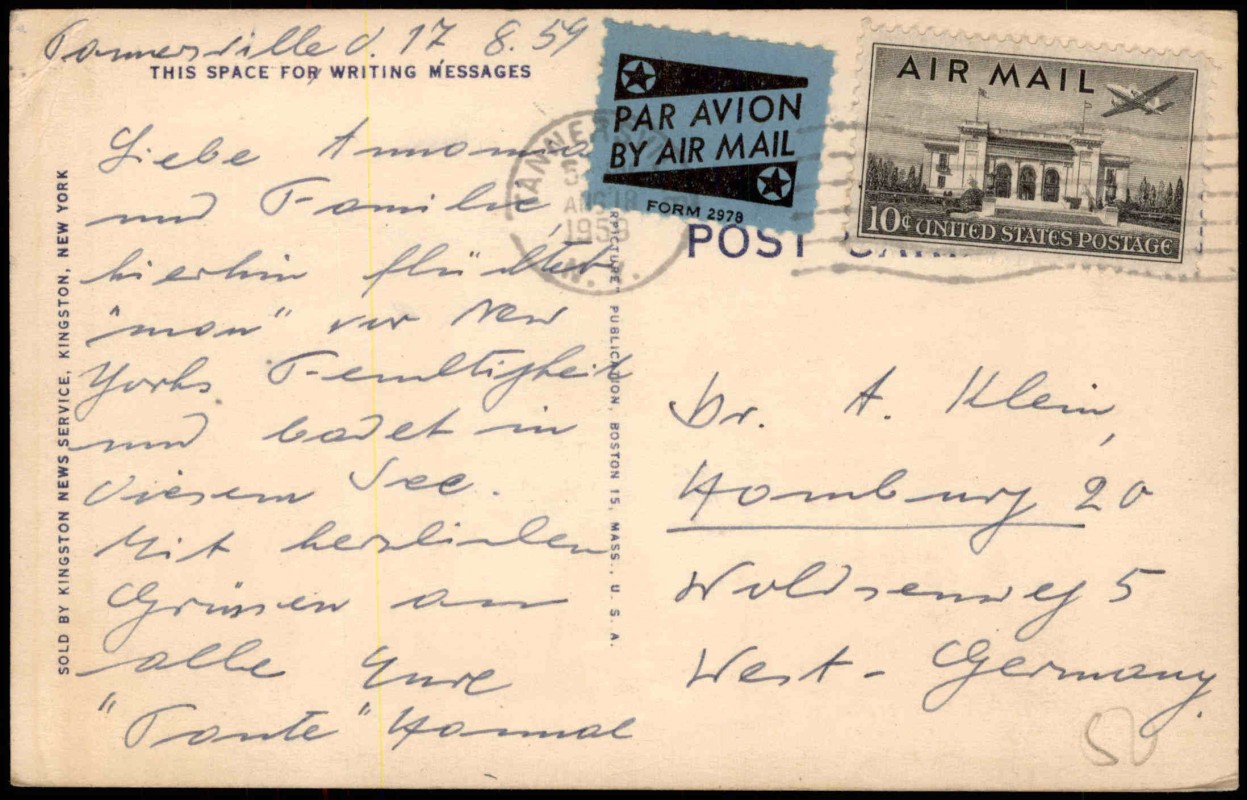 Tannersville d. 17 8. 59
THIS SPACE FOR WRITING MESSAGES
Liebe
und Familie
hierhin flüchtet
"man" vor New
Yorks Feuchtigkeit
und badet in
diesem See.
Mit herzlichen
Grüssen an
alle Eure
"Tante" Hannah
SOLD BY KINGSTON NEWS SERVICE, KINGSTON, NEW YORK
PUBLICATION, BOSTON 15, MASS., U. S. A.
TANNERSV
AUG 18
1959
N.
PAR AVION
BY AIR MAIL
FORM 2978
AIR MAIL
10¢ UNITED STATES POSTAGE
POST CARD
Dr. A. Klein,
Hamburg 20
Woldsenweg 5
West-Germany.
50